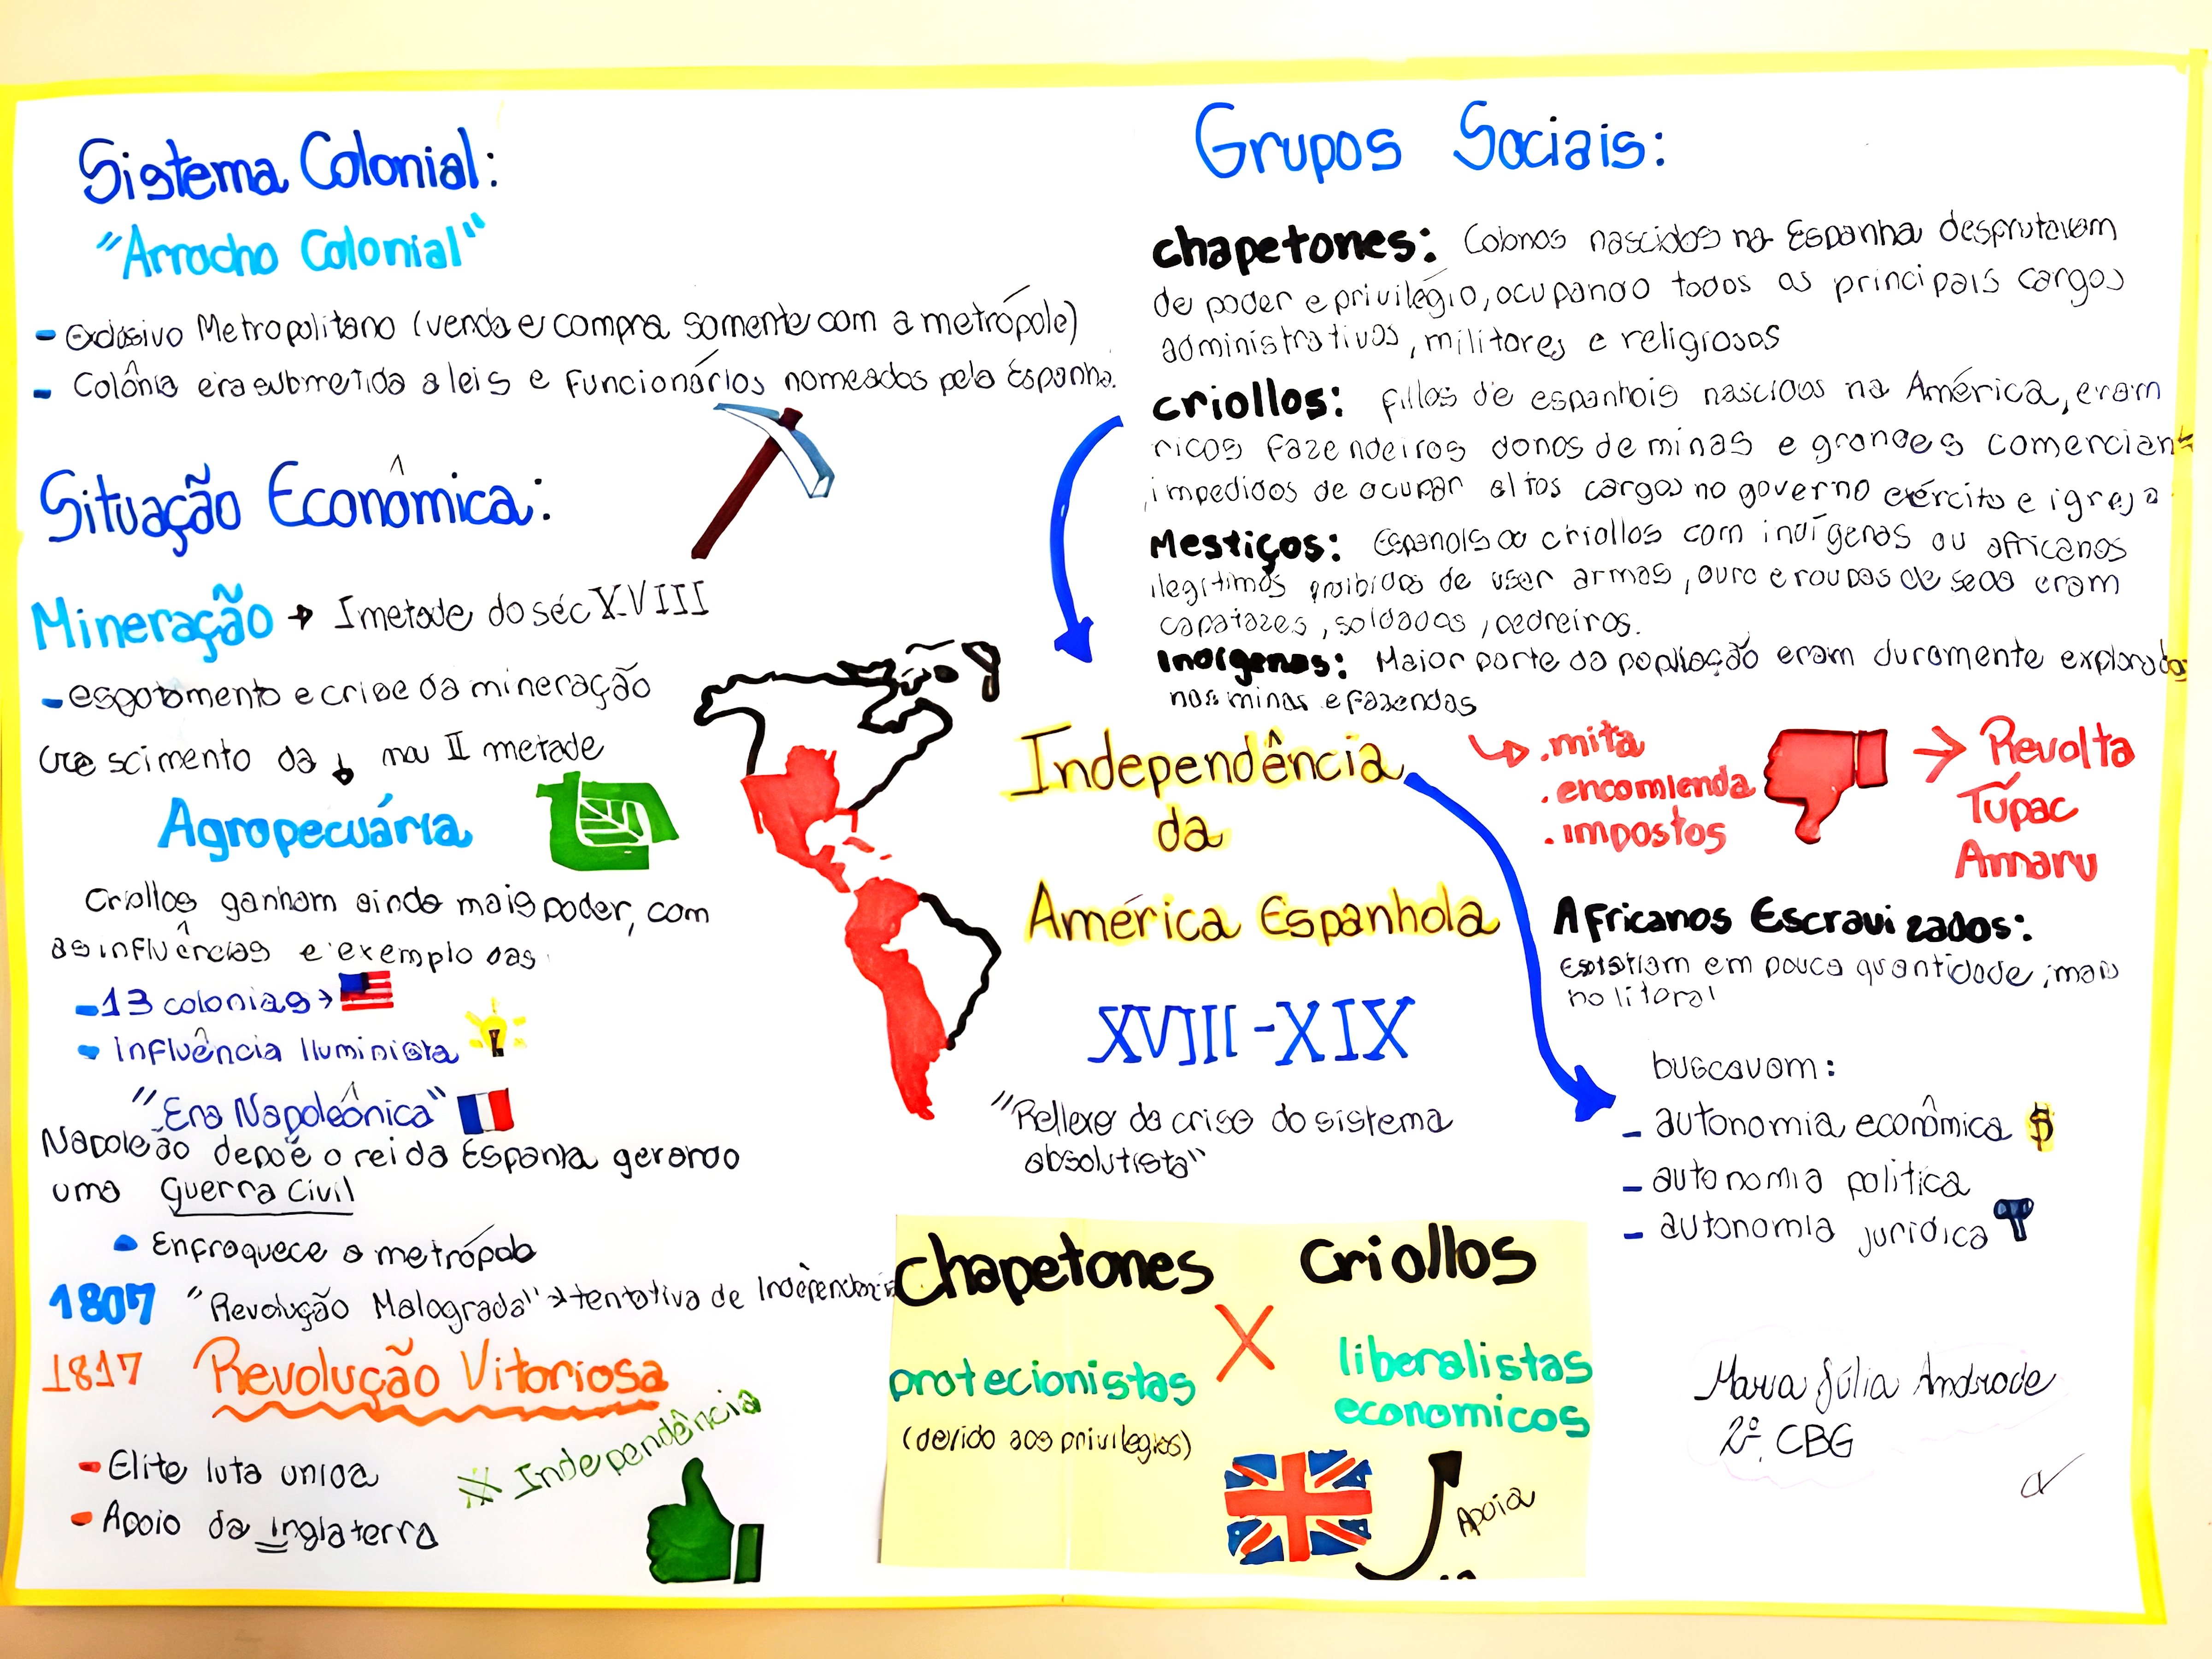 Sistema Colonial:
"Arrocho Colonial"
- Exclusivo Metropolitano (venda e compra somente com a metrópole)
- Colônia era submetida a leis e funcionários nomeados pela Espanha.
Situação Econômica:
Mineração → I metade do séc XVIII
- esgotamento e crise da mineração
crescimento da ↓ na II metade
Agropecuária
Criollos ganham ainda mais poder, com
as influências e exemplo das
- 13 colonias →
- Influência Iluminista
"Era Napoleônica"
Napoleão depoê o rei da Espanha gerando
uma Guerra Civil
Enfraquece a metrópole
1807 "Revolução Malograda" → tentativa de Independência
1817 Revolução Vitoriosa
- Elite luta unida
- Apoio da Inglaterra
Independência
Grupos Sociais:
chapetones: Colonos nascidos na Espanha desprutavam
de poder e privilégio, ocupando todos os principais cargos
administrativos, militares e religiosos
criollos: fillos de espanhois nascidos na América, eram
ricos fazendeiros donos de minas e grandes comerciant
impedidos de ocupar altos cargos no governo exército e igreja
Mestiços: Espanois ou criollos com indígenas ou africanos
ilegitimos proibidos de usar armas, ouro e roupas de seda eram
capatazes, soldados, pedreiros.
Indígenas: Maior parte da população eram duramente explorados
nas minas e fazendas
.mita
.encomienda
.impostos
→ Revolta
Túpac
Amaru
Independência
da
América Espanhola
XVIII - XIX
"Reflexo da crise do sistema
absolutista"
Africanos Escravizados:
Existiam em pouca quantidade, mais
no litoral
buscavam:
- autonomia econômica $
- autonomia política
- autonomia jurídica
Chapetones X Criollos
protecionistas
(devido aos privilegios)
liberalistas
economicos
Apoia
Maria Júlia Andrade
2º CBG